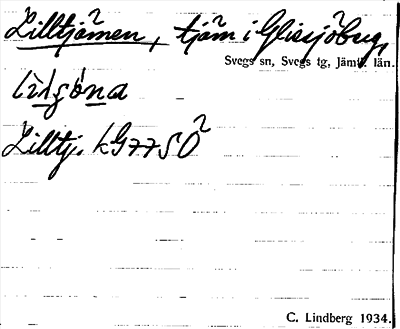 Lilltjämen, tjäm i Glissjöberg,
Svegs sn, Svegs tg, Jämtl. län.
Lilltj. kG77SÖ
C. Lindberg 1934.